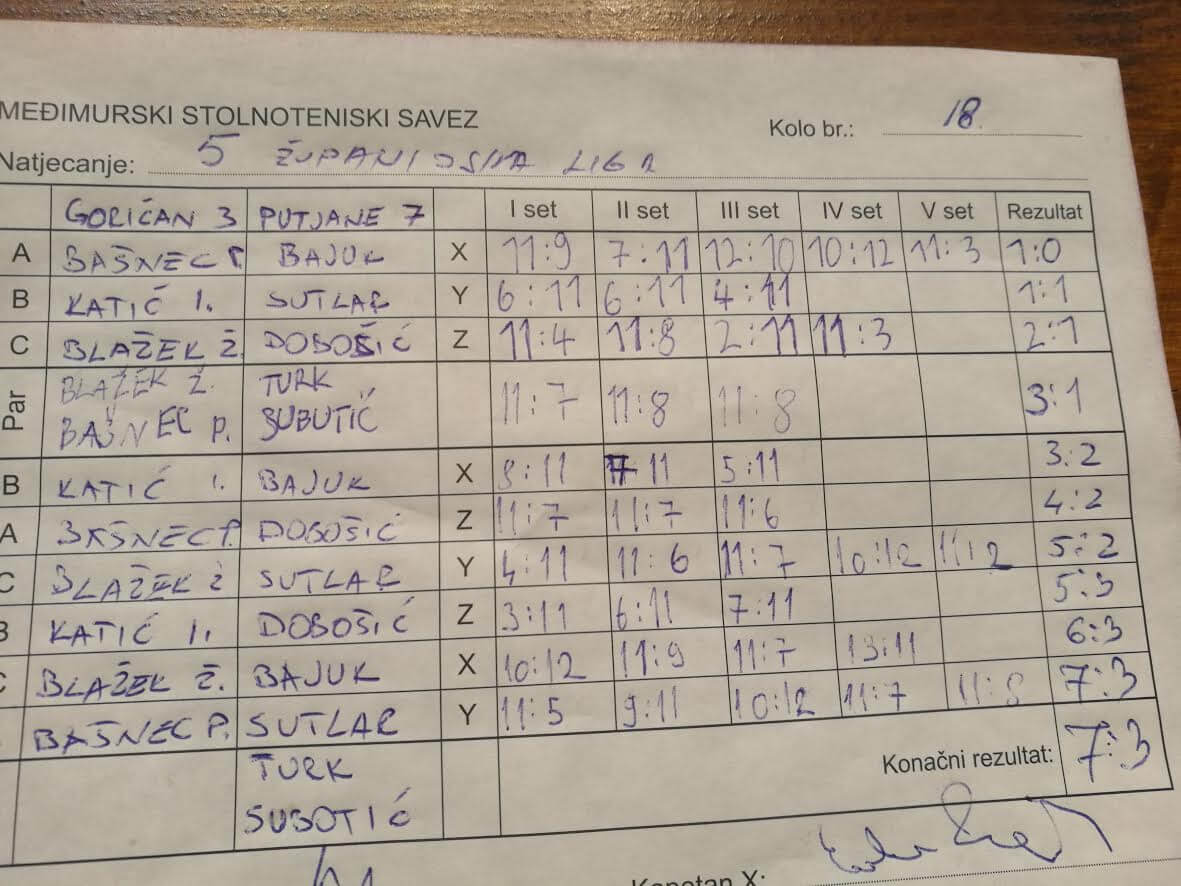 MEĐIMURSKI STOLNOTENISKI SAVEZ
Kolo br.: 18.
Natjecanje: 5 ŽUPANIJSKA LIGA
GORIČAN 3 PUTJANE 7 I set II set III set IV set V set Rezultat
A BAŠNEC P. BAJUK X 11:9 7:11 12:10 10:12 11:3 1:0
B KATIĆ I. SUTLAR Y 6:11 6:11 4:11 1:1
C BLAŽEK Ž. DOBOŠIĆ Z 11:4 11:8 2:11 11:3 2:1
Par BLAŽEK Ž. TURK 11:7 11:8 11:8 3:1
BAŠNEC P. SUBOTIĆ
B KATIĆ I. BAJUK X 8:11 7:11 5:11 3:2
A BAŠNEC P. DOBOŠIĆ Z 11:7 11:7 11:6 4:2
C BLAŽEK Ž SUTLAR Y 4:11 11:6 11:7 10:12 11:2 5:2
B KATIĆ I. DOBOŠIĆ Z 3:11 6:11 7:11 5:3
C BLAŽEK Ž. BAJUK X 10:12 11:9 11:7 13:11 6:3
BAŠNEC P. SUTLAR Y 11:5 9:11 10:12 11:7 11:8 7:3
TURK
SUBOTIĆ
Konačni rezultat: 7:3
Kapetan X: